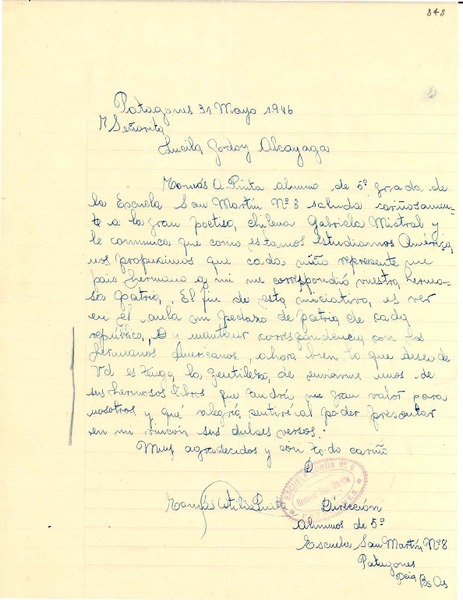 848
Patagones 31 Mayo 1946
Señorita
Lucila Godoy Alcayaga
Tomás A. Pinta alumno de 5º grado de
la Escuela San Martín Nº 8 saluda cariñosamen-
te a la gran poetisa chilena Gabriela Mistral y
le comunica que como estamos estudiando América
nos propusimos que cada niño represente un
país hermano y a mí me correspondió vuestra hermo-
sa patria. El fin de esta iniciativa es ver
en el aula un pedazo de patria de cada
república, y mantener correspondencia con los
hermanos americanos, ahora bien lo que deseo de
Vd es tenga la gentileza de enviarme unos de
sus hermosos libros que tendrá un gran valor para
nosotros y qué alegría sentiré al poder presentar
en mi rincón sus dulces versos.
Muy agradecidos y con todo cariño
Tomás
Dirección
Alumnos de 5º
Escuela San Martín Nº 8
Patagones
Pcia Bs As